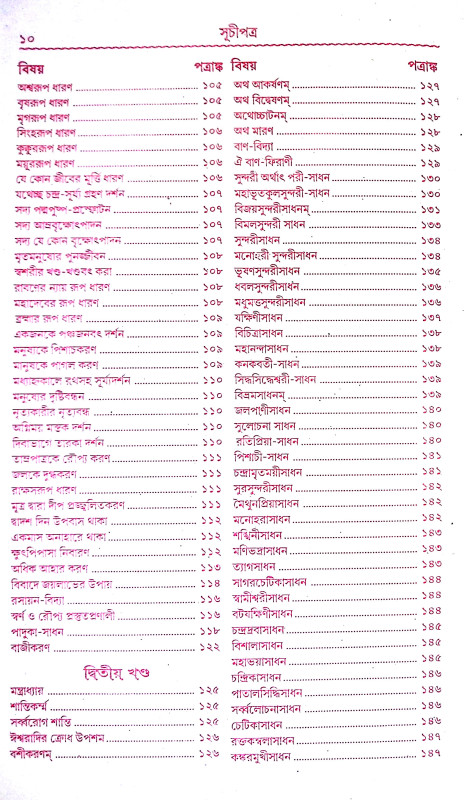 ১০
সূচীপত্র
বিষয় পত্রাঙ্ক
অশ্বরূপ ধারণ ১০৫
বৃষরূপ ধারণ ১০৫
মৃগরূপ ধারণ ১০৫
সিংহরূপ ধারণ ১০৬
কুক্কুররূপ ধারণ ১০৬
ময়ূররূপ ধারণ ১০৬
যে কোন জীবের মূর্ত্তি ধারণ ১০৬
যথেচ্ছ চন্দ্র-সূর্য্য গ্রহণ দর্শন ১০৭
সদ্য পদ্মপুষ্প-প্রস্ফোটন ১০৭
সদ্য আম্রবৃক্ষোৎপাদন ১০৭
সদ্য যে কোন বৃক্ষোৎপাদন ১০৭
মৃতমনুষ্যের পুনর্জ্জীবন ১০৮
স্বশরীর খণ্ড-খণ্ডবৎ করা ১০৮
রাবণের ন্যায় রূপ ধারণ ১০৮
মহাদেবের রূপ ধারণ ১০৮
ব্রহ্মার রূপ ধারণ ১০৯
একজনকে পঞ্চজনবৎ দর্শন ১০৯
মনুষ্যকে পিশাচকরণ ১০৯
মানুষকে পাগল করণ ১০৯
মধ্যাহ্নকালে রথসহ সূর্য্যদর্শন ১১০
মনুষ্যের দৃষ্টিবন্ধন ১১০
নৃত্যকারীর নৃত্যবন্ধ ১১০
অগ্নিময় মস্তক দর্শন ১১০
দিবাভাগে তারকা দর্শন ১১০
তাম্রপাত্রকে রৌপ্য করণ ১১১
জলকে দুগ্ধকরণ ১১১
রাক্ষসরূপ ধারণ ১১১
মূত্র দ্বারা দীপ প্রজ্জ্বলিতকরণ ১১১
দ্বাদশ দিন উপবাস থাকা ১১২
একমাস অনাহারে থাকা ১১২
ক্ষুৎপিপাসা নিবারণ ১১২
অধিক আহার করণ ১১৩
বিবাদে জয়লাভের উপায় ১১৪
রসায়ন-বিদ্যা ১১৬
স্বর্ণ ও রৌপ্য প্রস্তুতপ্রণালী ১১৬
পাদুকা-সাধন ১১৮
বাজীকরণ ১২২
দ্বিতীয় খণ্ড
মন্ত্রাধ্যার ১২৫
শান্তিকর্ম্ম ১২৫
সর্ব্বরোগ শান্তি ১২৫
ঈশ্বরাদির ক্রোধ উপশম ১২৬
বশীকরণম্ ১২৬
বিষয় পত্রাঙ্ক
অথ আকর্ষণম্ ১২৭
অথ বিদ্বেষণম্ ১২৭
অথোচ্চাটনম্ ১২৮
অথ মারণ ১২৮
বাণ-বিদ্যা ১২৯
ঐ বাণ-ফিরাণী ১২৯
সুন্দরী অর্থাৎ পরী-সাধন ১৩০
মহাভূতকুলসুন্দরী-সাধন ১৩০
বিজয়সুন্দরীসাধনম্ ১৩১
বিমলসুন্দরী সাধন ১৩৩
সুন্দরীসাধন ১৩৪
মনোহরী সুন্দরীসাধন ১৩৪
ভূষণসুন্দরীসাধন ১৩৫
ধবলসুন্দরীসাধন ১৩৬
মধুমত্তসুন্দরীসাধন ১৩৬
যক্ষিণীসাধন ১৩৭
বিচিত্রাসাধন ১৩৮
মহানন্দাসাধন ১৩৮
কনকবতী-সাধন ১৩৯
সিদ্ধসিদ্ধেশ্বরী-সাধন ১৩৯
বিভ্রমসাধনম্ ১৩৯
জলপাণীসাধন ১৪০
সুলোচনা সাধন ১৪০
রতিপ্রিয়া-সাধন ১৪০
পিশাচী-সাধন ১৪১
চন্দ্রামৃতময়ীসাধন ১৪১
সুরসুন্দরীসাধন ১৪২
মৈথুনপ্রিয়াসাধন ১৪২
মনোহরাসাধন ১৪২
শঙ্খিনীসাধন ১৪৩
মণিভদ্রাসাধন ১৪৩
ত্যাগসাধন ১৪৩
সাগরচেটিকাসাধন ১৪৪
স্বামীশ্বরীসাধন ১৪৪
বটযক্ষিণীসাধন ১৪৪
চন্দ্রদ্রবাসাধন ১৪৫
বিশালাসাধন ১৪৫
মহাভয়াসাধন ১৪৫
চন্দ্রিকাসাধন ১৪৬
পাতালসিদ্ধিসাধন ১৪৬
সর্ব্বলোচনাসাধন ১৪৬
চেটিকাসাধন ১৪৬
রক্তকম্বলাসাধন ১৪৭
কঙ্করমুখীসাধন ১৪৭